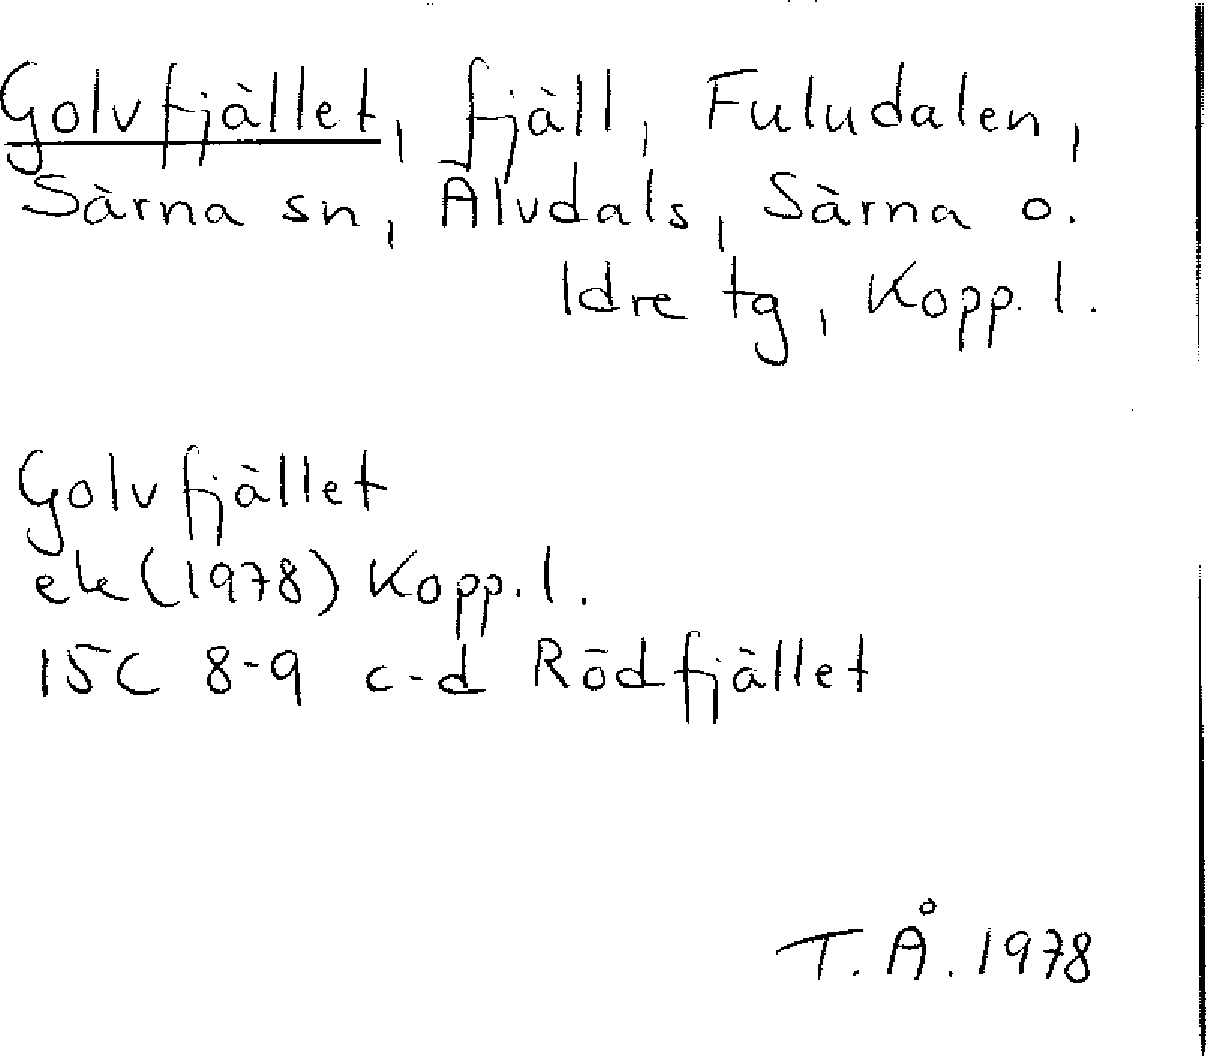 Golvfjället, fjäll, Fuludalen,
Särna sn, Älvdals, Särna o.
Idre tg, Kopp. l.
Golvfjället
ek (1978) Kopp. l.
15C 8-9 c-d Rödfjället
T. Å. 1978